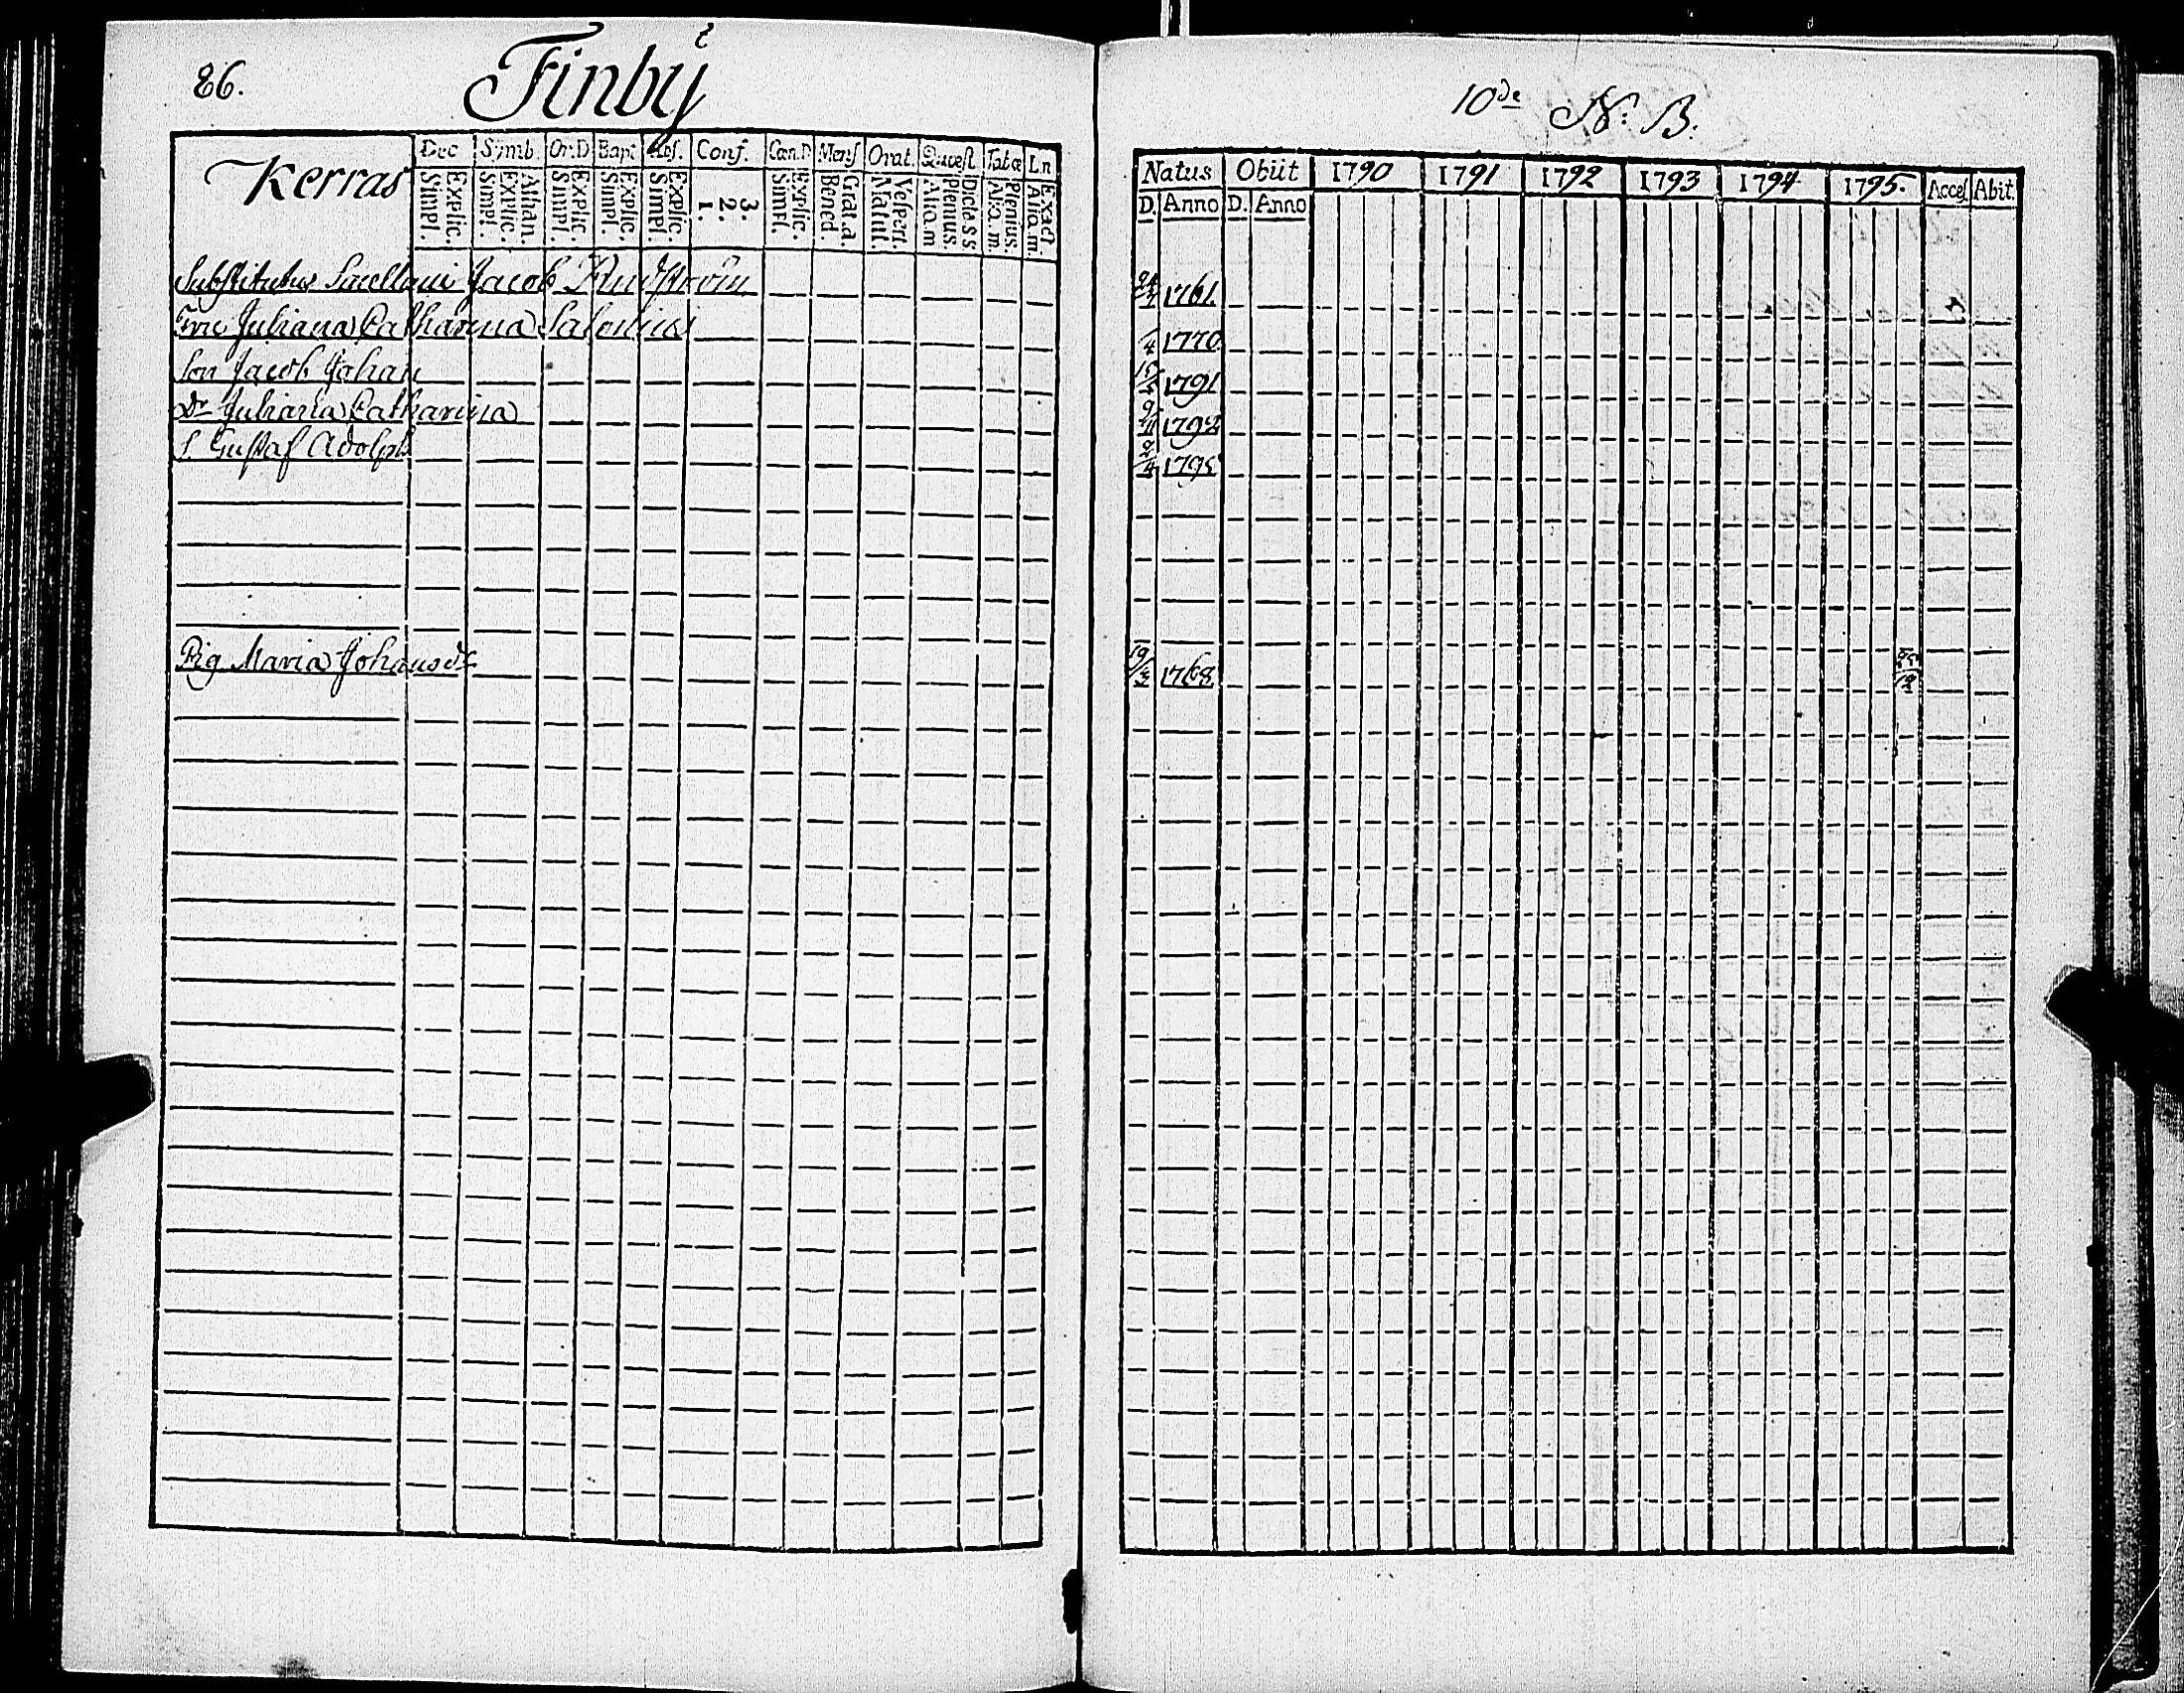 86.
Finby
10de N: B.
Kerras
Dec Symb. Or.D Bapt Abs. Conf. Can.D Mens Orat. Quæst Tabæ Ln
Simpl. Explic. Simpl. Explic. Athan. Simpl. Explic. Simpl. Explic. Simpl. Explic. 1. 2. 3. Simpl. Explic. Bened. Grat.a. Matut. Vespert. Alia.m Plenius. Dicta s.s. Alia.m. Plenius. Alia.m. Exact
Natus Obiit 1790 1791 1792 1793 1794 1795. Acces. Abit.
D. Anno D. Anno
Substitutus Jacob 24/7 1761.
Fru Juliana Catharina Salonius /4 1770.
Son Jacob Johan 1791
Dr Juliana Catharina 9/11 1792
S. Gustaf Adolph 2/4 1795
Pig. Maria Johansdr 19/ 1768.